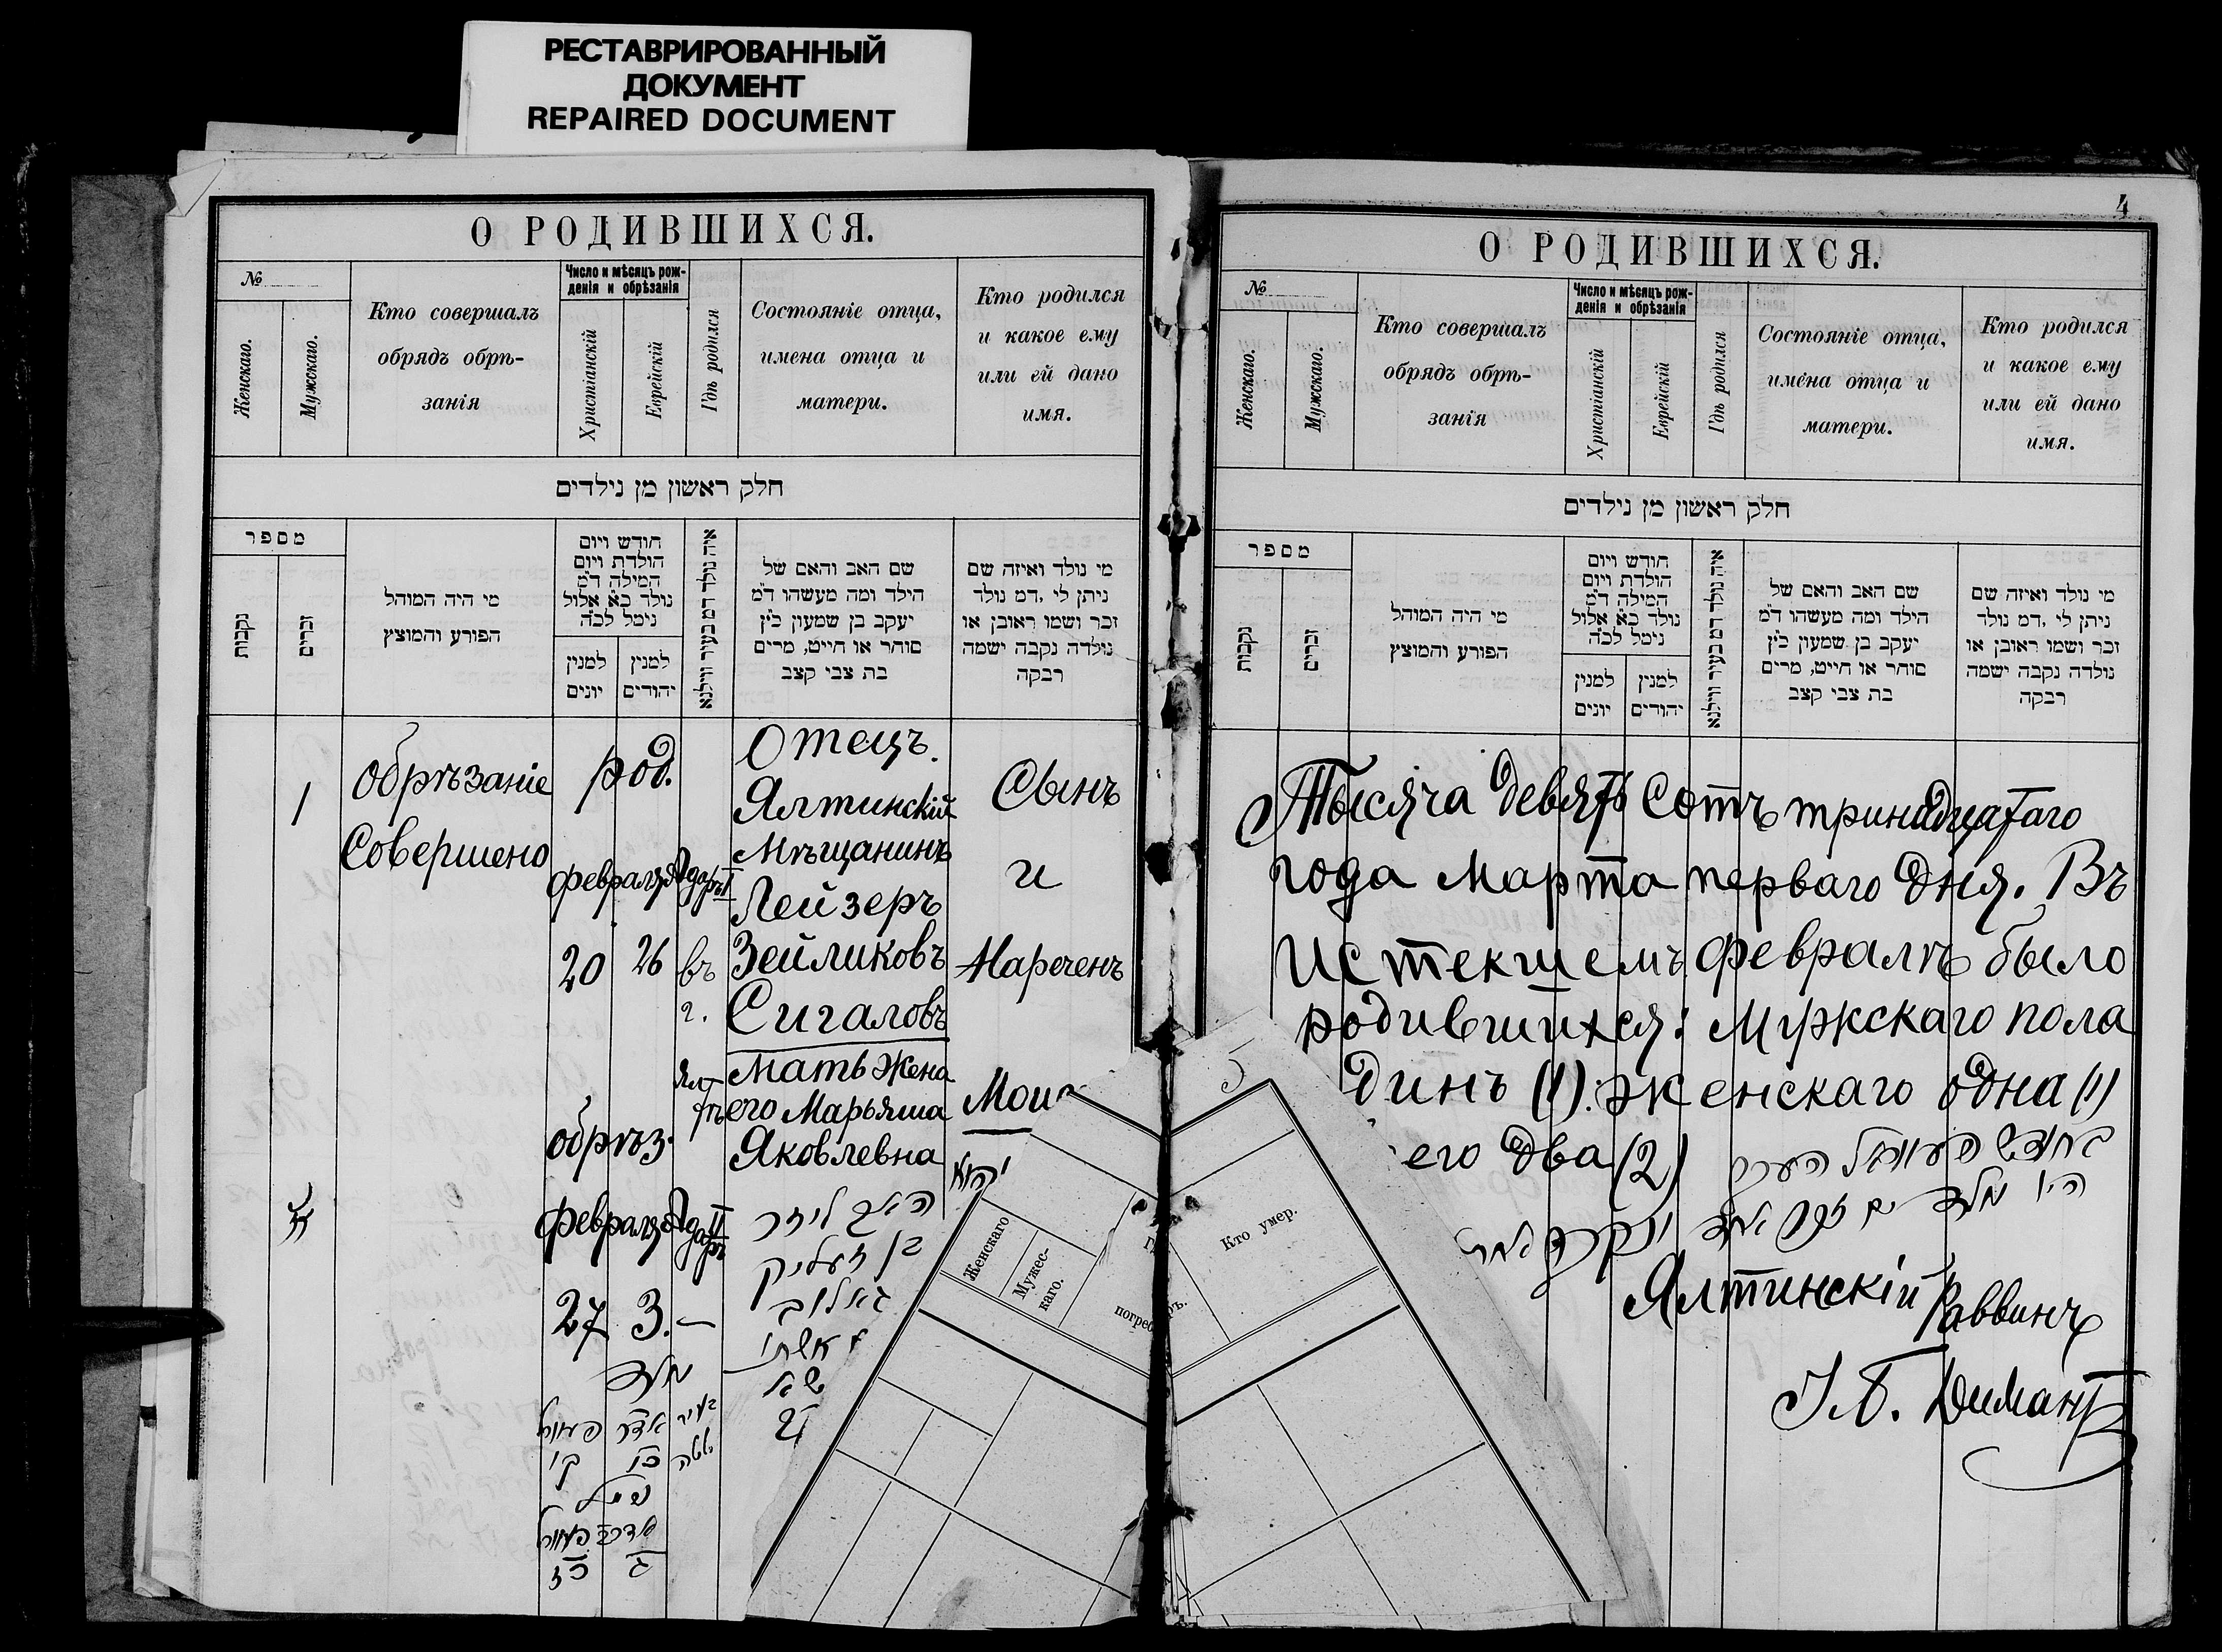 РЕСТАВРИРОВАННЫЙ
ДОКУМЕНТ
REPAIRED DOCUMENT
О РОДИВШИХСЯ.
№
Женскаго.
Мужскаго.
Кто совершалъ
обрядъ обрѣ-
занія
Число и мѣсяцъ рож-
денія и обрѣзанія
Христіанскій
Еврейскій
Гдѣ родился
Состояніе отца,
имена отца и
матери.
Кто родился
и какое ему
или ей дано
имя.
חלק ראשון מן נילדים
מספר
נקבות
זכרים
מי היה המוהל
הפורע והמוצץ
חודש ויום
הולדת ויום
המילה ד״מ
נולד כא אלול
נימל לכ״ה
למנין
יונים
למנין
יהודים
איה נולד דמ בעיר ווילנא
שם האב והאם של
הילד ומה מעשהו ד״מ
יעקב בן שמעון כ״ץ
סוחר או חייט, מרים
בת צבי קצב
מי נולד ואיזה שם
ניתן לי ,דמ נולד
זכר ושמו ראובן או
נולדה נקבה ישמה
רבקה
1
Обрѣзаніе
Совершено
род.
Февраля Адаръ II
20 26 въ
г.
Ял
тѣ
обрѣз.
Февраля Адаръ II
27 3.—
Отецъ.
Ялтинскій
Мѣщанинъ
Лейзеръ
Зейликовъ
Сигаловъ
Мать Жена
его Марьяша
Яковлевна
Сынъ
и
Нареченъ
Мои
האב ליזר
בן זעליק
גאלוב
אשתו
נולד
אדר
בעיר
כו
יאלטה
נימול
ג
כז
4
О РОДИВШИХСЯ.
№
Женскаго.
Мужскаго.
Кто совершалъ
обрядъ обрѣ-
занія
Число и мѣсяцъ рож-
денія и обрѣзанія
Христіанскій
Еврейскій
Гдѣ родился
Состояніе отца,
имена отца и
матери.
Кто родился
и какое ему
или ей дано
имя.
חלק ראשון מן נילדים
מספר
נקבות
זכרים
מי היה המוהל
הפורע והמוצץ
חודש ויום
הולדת ויום
המילה ד״מ
נולד כא אלול
נימל לכ״ה
למנין
יונים
למנין
יהודים
איה נולד דמ בעיר ווילנא
שם האב והאם של
הילד ומה מעשהו ד״מ
יעקב בן שמעון כ״ץ
סוחר או חייט, מרים
בת צבי קצב
מי נולד ואיזה שם
ניתן לי ,דמ נולד
זכר ושמו ראובן או
נולדה נקבה ישמה
רבקה
Тысяча девять Сотъ тринадцатаго
года Марта перваго дня. Въ
Истекшемъ Февралѣ было
родившихся: Мужскаго пола
динъ (1). женскаго одна (1)
его два (2)
Ялтинскій Раввинъ
І.Б. Димантъ
5
Женскаго
Мужес-
каго.
погреб
Кто умер.